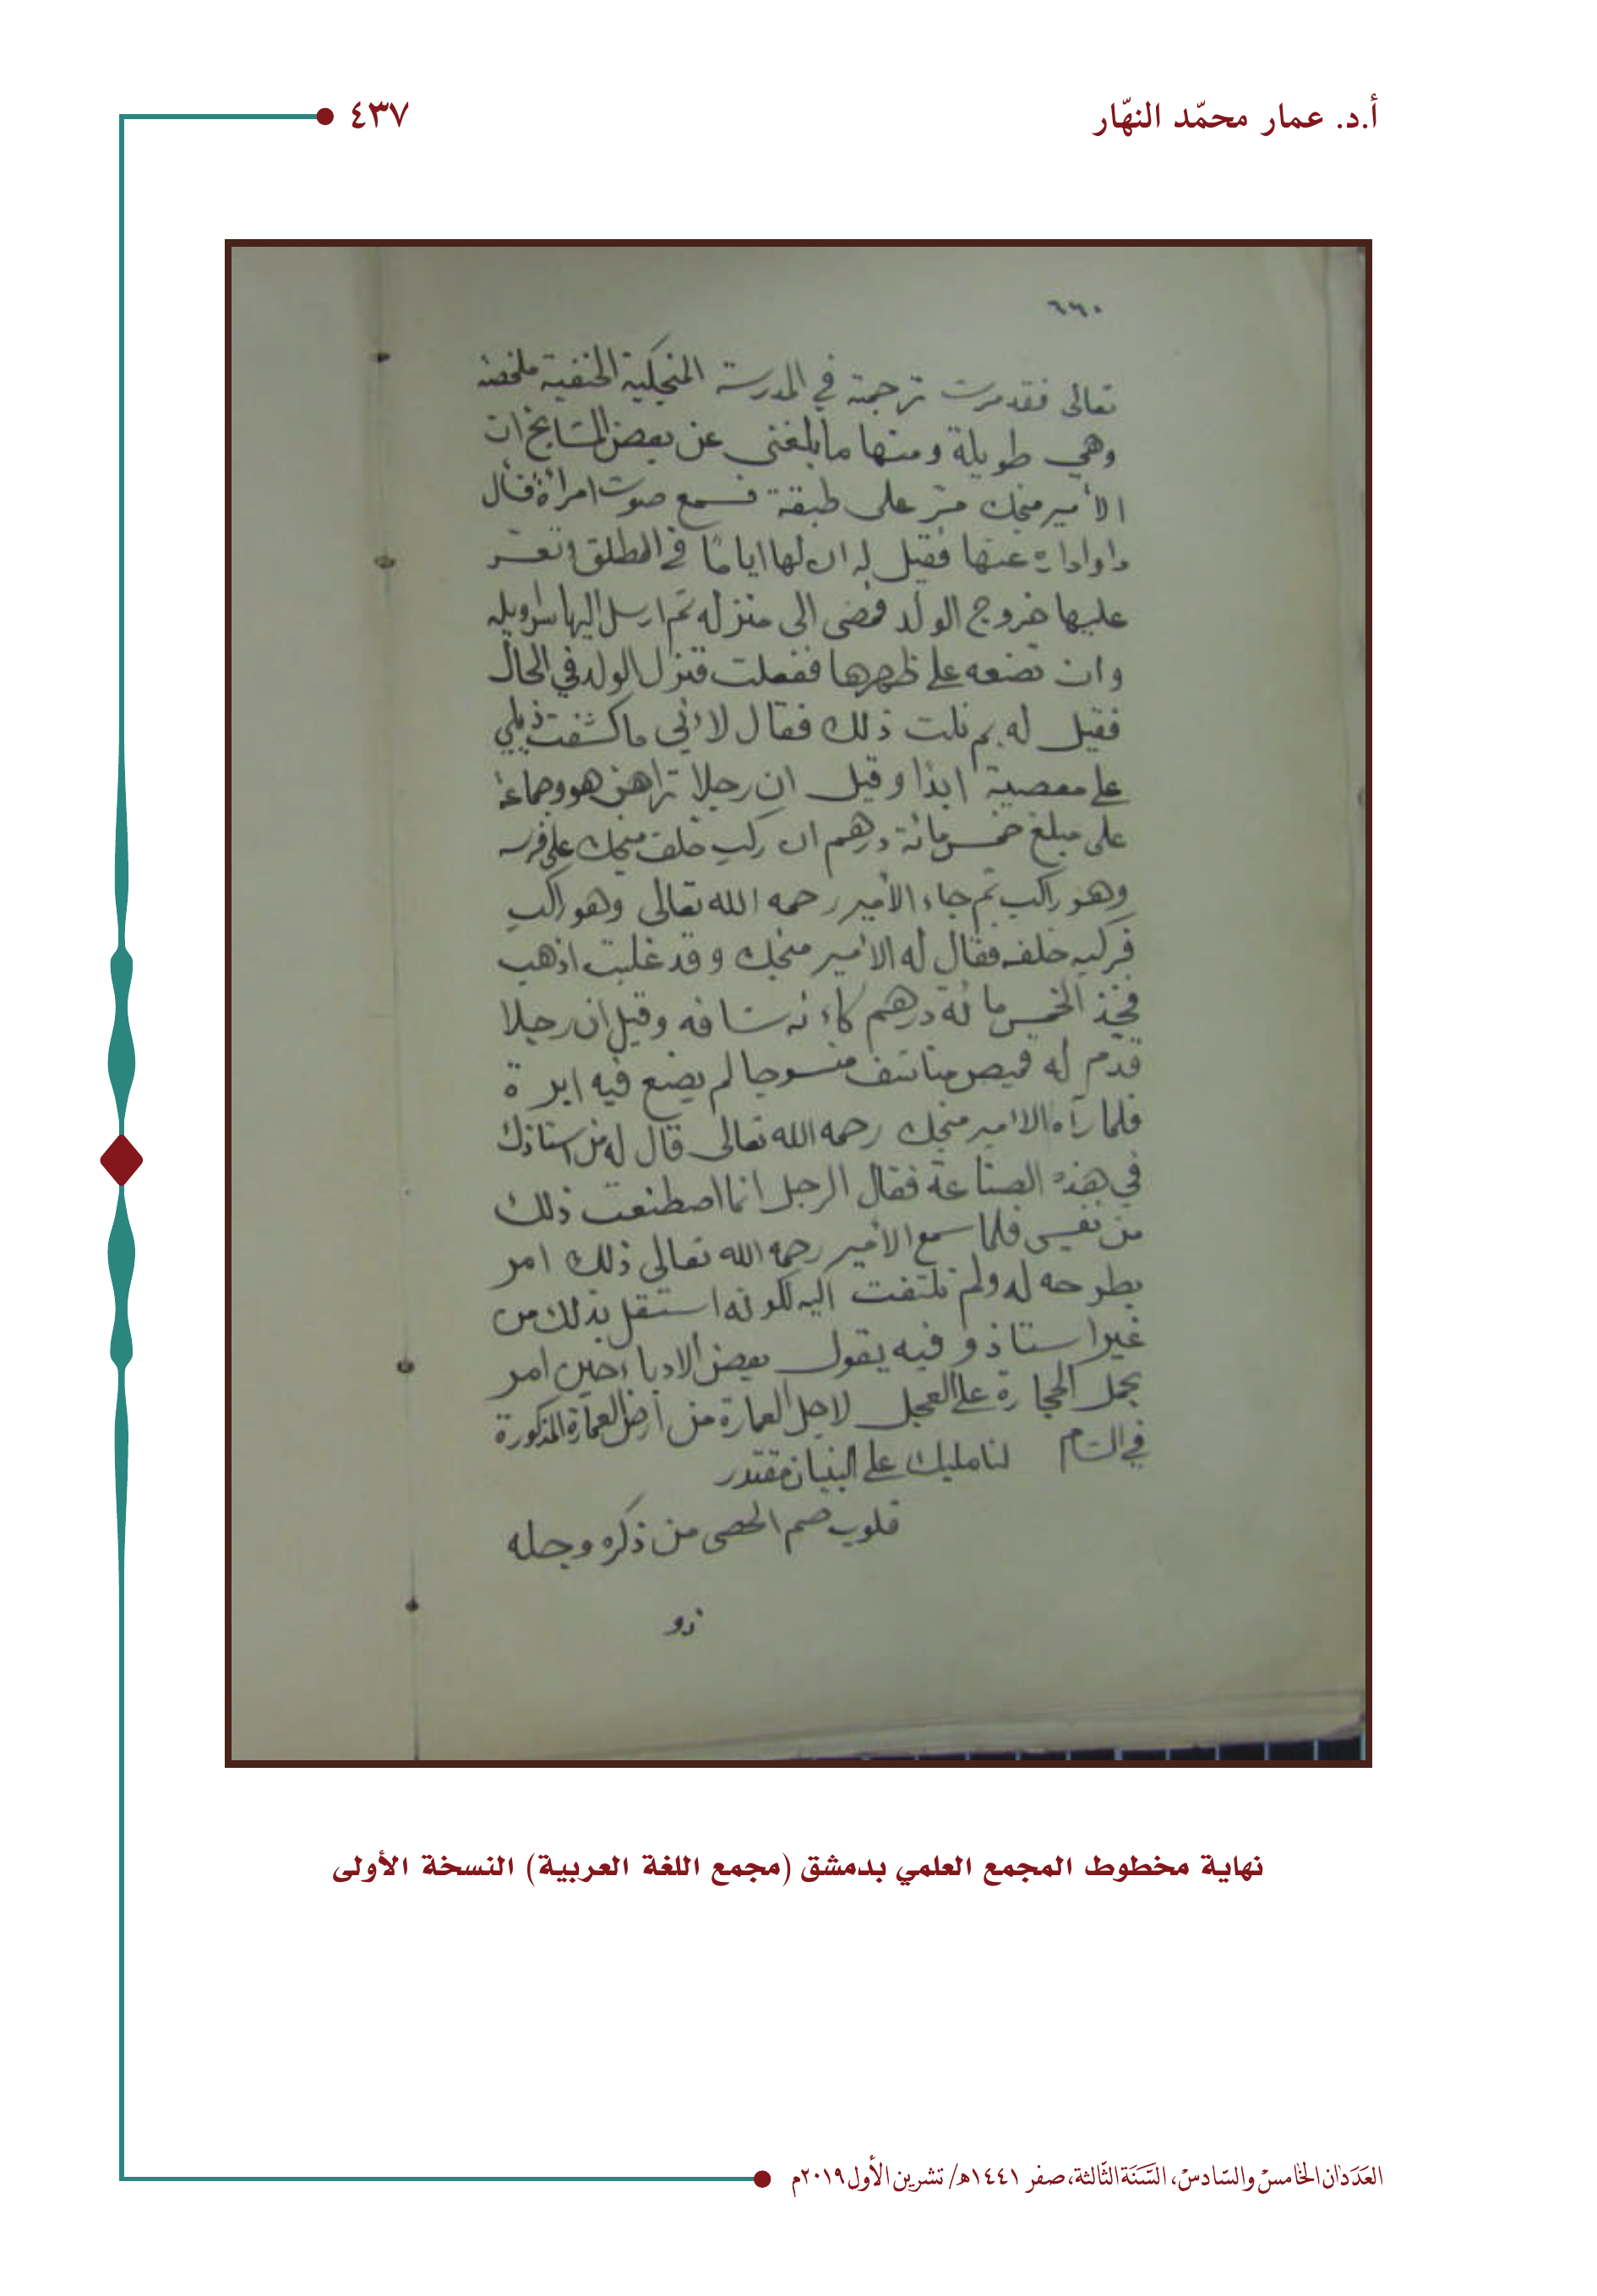 أ.د. عمار محمّد النهّار
٤٣٧
٦٦٠
تعالى فقد مرت ترجمته في المدرسة المنجكية الحنفية ملخصه
وهي طويلة ومنها ما بلغني عن بعض المشايخ ان
الأمير منجك مرّ على طبقة فسمع صوت امرأة فسأل
داواداره عنها فقيل له ان لها اياما في المطلق وتعسر
عليها خروج الولد فمضى الى منزله ثم ارسل اليها سراويله
وان تضعه على ظهرها ففعلت فنزل الولد في الحال
فقيل له بم نلت ذلك فقال لأني ما كشفت ذيلي
على معصية ابدا وقيل ان رجلا تراهن هو وجماعة
على مبلغ خمسمائة درهم ان ركب خلف منجك على فرسه
وهو راكب ثم جاء الأمير رحمه الله تعالى وهو راكب
فركب خلفه فقال له الأمير منجك وقد غلبت اذهب
فخذ الخمسمائة درهم كاء نه شافه وقيل ان رجلا
قدم له قميص مناشف منسوجا لم يضع فيه ابرة
فلما رآه الأمير منجك رحمه الله تعالى قال له من استاذك
في هذه الصناعة فقال الرجل انما اصطنعت ذلك
من نفسي فلما سمع الأمير رحمه الله تعالى ذلك امر
بطرحه له ولم تلتفت اليه لكونه استقل بذلك من
غير استاذ و فيه يقول بعض الادباء حين امر
بحمل الحجارة على العجل لاجل العمارة من ارض العمارة المذكورة
في الشام لنا مليك على البنيان مقتدر
قلوب صم الحصى من ذكره وجله
نهاية مخطوط المجمع العلمي بدمشق (مجمع اللغة العربية) النسخة الأولى
العَدَدان الخامسُ والسّادسُ، السَّنَة الثّالثة، صفر ١٤٤١هـ/ تشرين الأول ٢٠١٩م